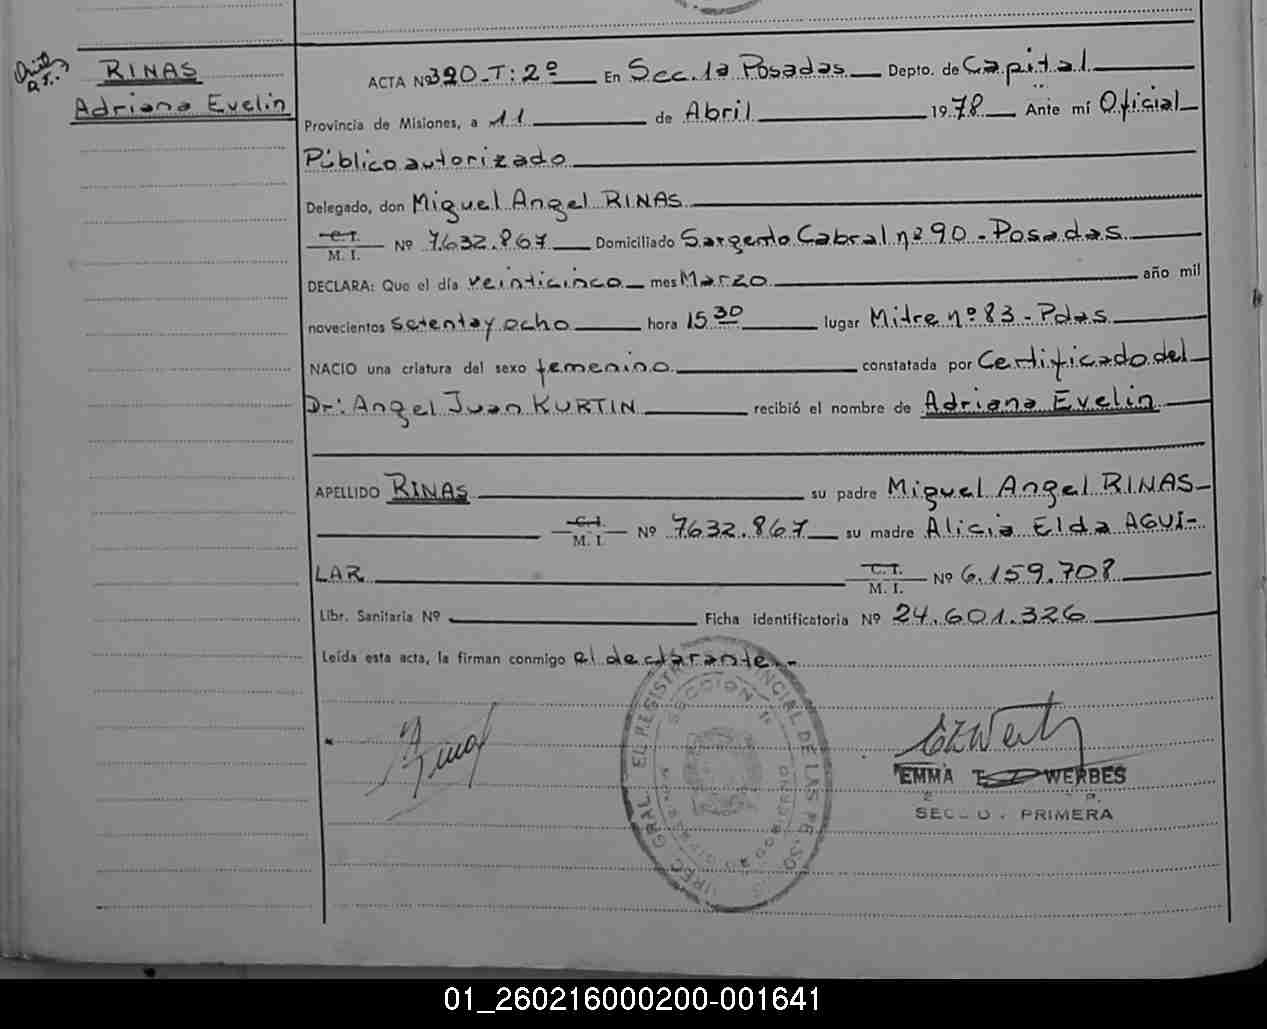 RINAS
Adriana Evelin
ACTA Nº 320-T: 2º En Sec. 1a Posadas Depto. de Capital
Provincia de Misiones, a 11 de Abril 1978 Ante mí Oficial
Público autorizado
Delegado, don Miguel Angel RINAS
C.I. M. I. Nº 7.632.867 Domiciliado Sargento Cabral nº 90 - Posadas
DECLARA: Que el día veinticinco mes Marzo año mil
novecientos setenta y ocho hora 15 30 lugar Mitre nº 83 - Pdas
NACIO una criatura del sexo femenino constatada por Certificado del
Dr: Angel Juan KURTIN recibió el nombre de Adriana Evelin
APELLIDO RINAS su padre Miguel Angel RINAS
C.I. M. I. Nº 7.632.867 su madre Alicia Elda AGUI-
LAR C.I. M. I. Nº 6.159.708
Libr. Sanitaria Nº Ficha identificatoria Nº 24.601.326
Leída esta acta, la firman conmigo el declarante.-
SECCION 1
EL REGISTRO PROVINCIAL DE LAS PERSONAS
EMMA WERBES
PRIMERA
01_260216000200-001641